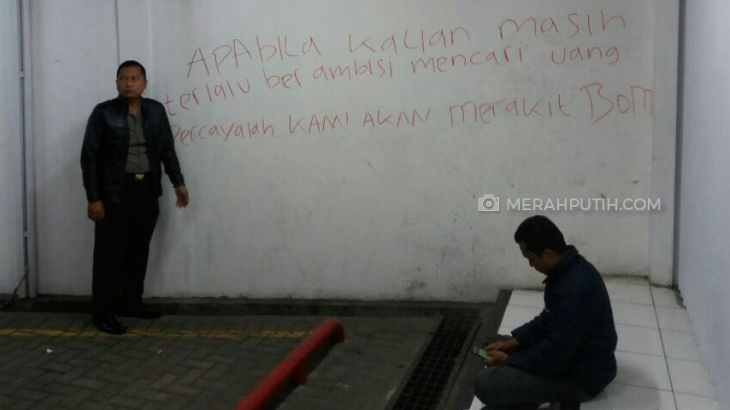 APABILA KALIAN masih
terlalu ber ambisi mencari uang
percayalah KAMI AKAN merakit Bom
MERAHPUTIH.COM